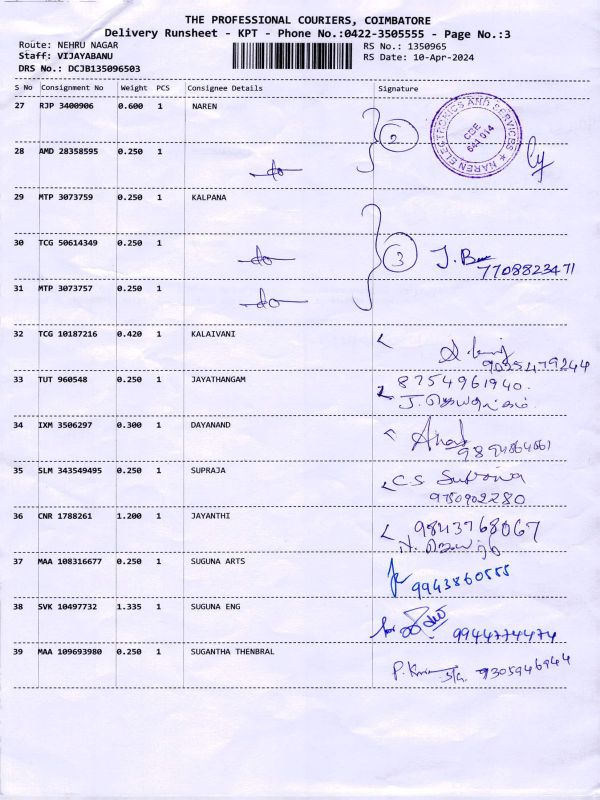 THE PROFESSIONAL COURIERS, COIMBATORE
Delivery Runsheet - KPT - Phone No.:0422-3505555 - Page No.:3
Route: NEHRU NAGAR RS No.: 1350965
Staff: VIJAYABANU RS Date: 10-Apr-2024
DRS No.: DCJB135096503
S No Consignment No Weight PCS Consignee Details Signature
27 RJP 3400906 0.600 1 NAREN
2
NAREN ELECTRONICS AND SERVICES
CBE
641 014
28 AMD 28358595 0.250 1
do
29 MTP 3073759 0.250 1 KALPANA
30 TCG 50614349 0.250 1
do 3 7708823471
31 MTP 3073757 0.250 1
do
32 TCG 10187216 0.420 1 KALAIVANI
33 TUT 960548 0.250 1 JAYATHANGAM 8754961940.
34 IXM 3506297 0.300 1 DAYANAND
35 SLM 343549495 0.250 1 SUPRAJA C S
9750902280
36 CNR 1788261 1.200 1 JAYANTHI 9843768067
37 MAA 108316677 0.250 1 SUGUNA ARTS 9943860555
38 SVK 10497732 1.335 1 SUGUNA ENG 9944774474
39 MAA 109693980 0.250 1 SUGANTHA THENBRAL 9305946944